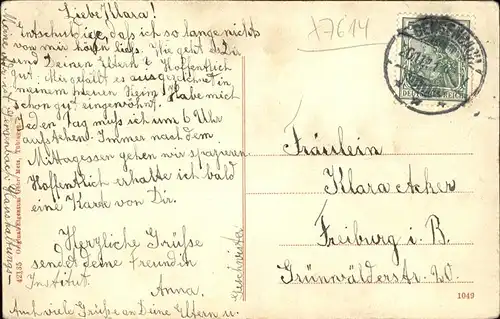 Liebe Klara!
Entschuldige, daß ich so lange nichts
von mir hören ließ. Wie geht es Dir
und Deinen Eltern? Hoffentlich
gut. Mir gefällt es ausgezeichnet in
meinem neuen Heim. Habe mich
schon gut eingewöhnt.
Jeden Tag muß ich um 6 Uhr
aufstehen. Immer nach dem
Mittagessen gehen wir spazieren.
Hoffentlich erhalte ich bald
eine Karte von Dir.
Herzliche Grüße
sendet deine Freundin
Institut. Anna.
Auch viele Grüße an Deine Eltern u.
Geschwister
Meine
Haushaltungs-
42135
1049
A7614
DEUTSCHES REICH
Fräulein
Klara Acker
Freiburg i. B.
Grünwälderstr. 20.